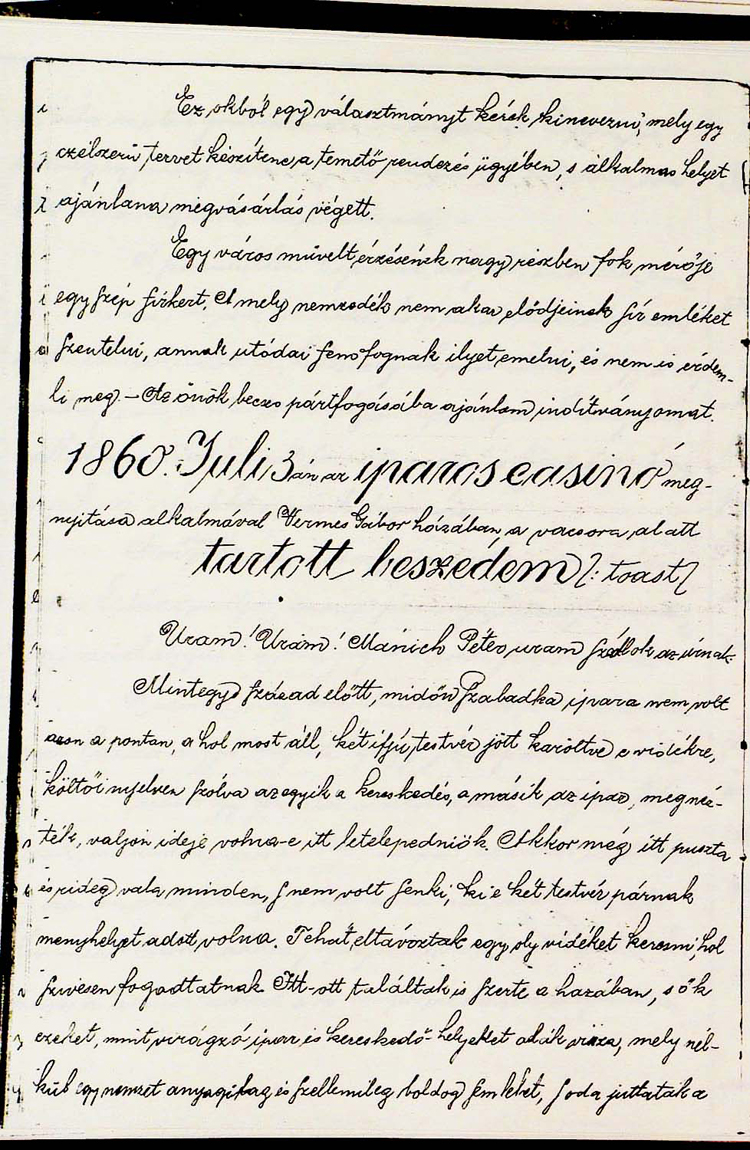 Ez okból egy választmányt kérek kinevezni, mely egy
czélszerü tervet készítene, a temető rendezés ügyében, s alkalmas helyet
ajánlana megvásárlás végett.
Egy város müvelt érzésének nagy részben fok mérője
egy szép sírkert. A mely nemzedék nem akar elődjeinek sír emléket
szentelni, annak utódai sem fognak ilyet emelni, és nem is érdem-
li meg. — Az önök becses pártfogásába ajánlom inditványomat.
1860. Juli 3án az iparos casinó meg-
nyitása alkalmával Vermes Gábor házában, a vacsora alatt
tartott beszedem /: toast
Uram! Uram! Mánich Péter uram szóllok az úrnak.
Mintegy század előtt, midőn Szabadka ipara nem volt
azon a ponton, a hol most áll, két ifjú testvér jött karöltve e vidékre,
költői nyelven szólva az egyik a kereskedés, a másik az ipar, megnéz-
ték, valjon ideje volna-e itt letelepedniök. Akkor még itt puszta
és rideg vala minden, s nem volt senki, ki e két testvér párnak
menyhelyet adott volna. Tehát eltávoztak egy oly vidéket keresni, hol
szivesen fogadtatnak. Itt-ott találtak is szerte a hazában, s ők
ezeket, mint virágzó ipar és kereskedő-helyeket adák vissza, mely nél-
kül egy nemzet anyagilag és szellemileg boldog sem lehet, s oda juttaták a